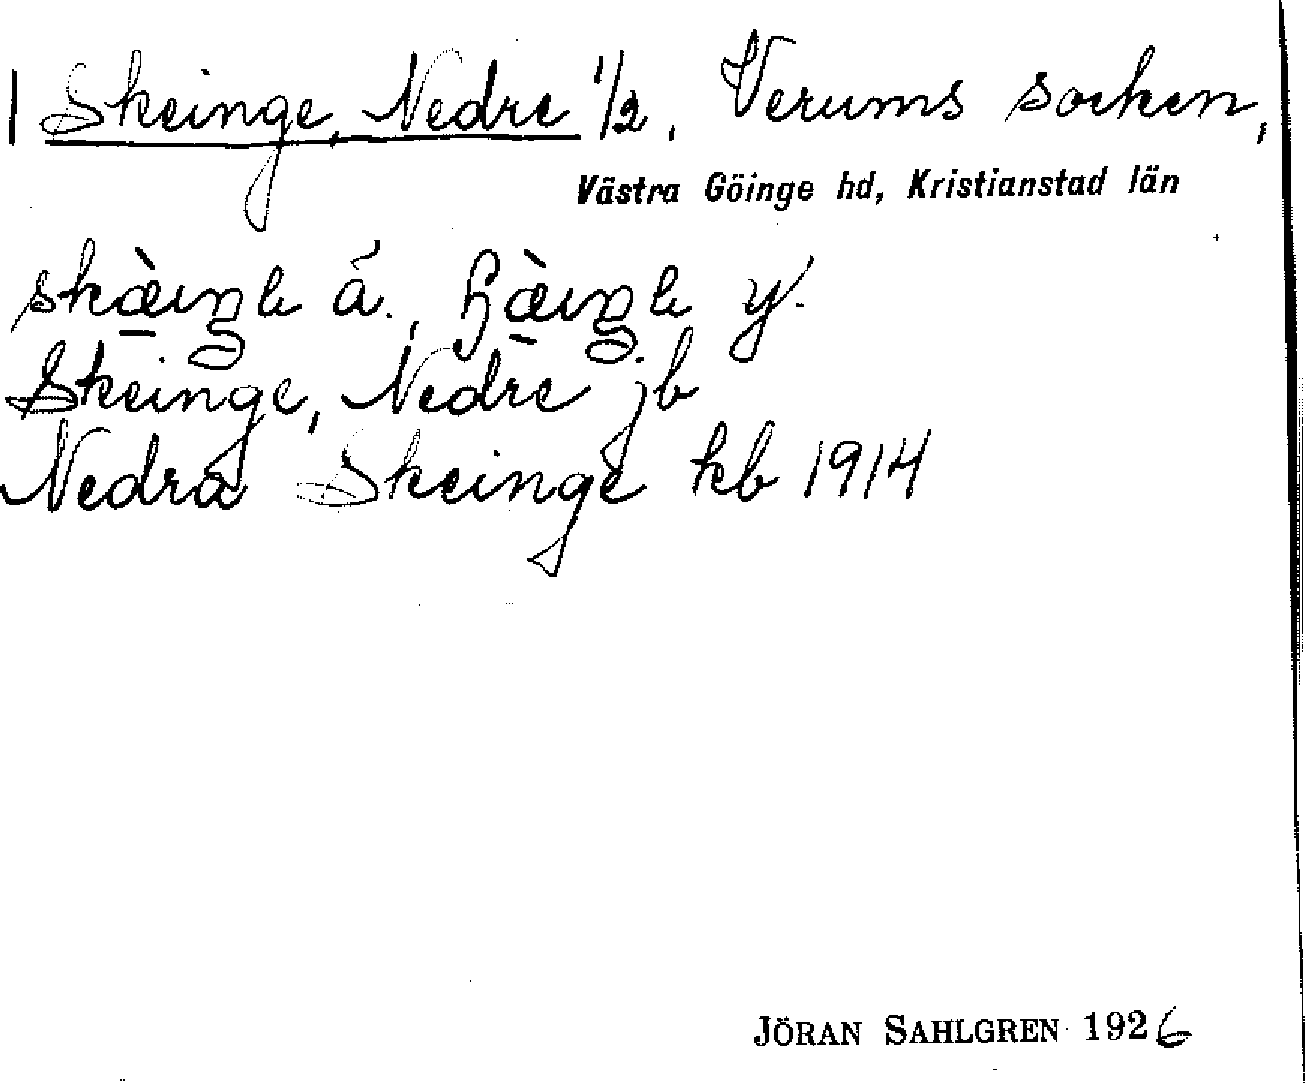 | Skeinge, Nedre 1/2, Verums socken,
Västra Göinge hd, Kristianstad län
á., y.
Skeinge, Nedre jb
Nedra Skeinge kb 1914
JÖRAN SAHLGREN 1926